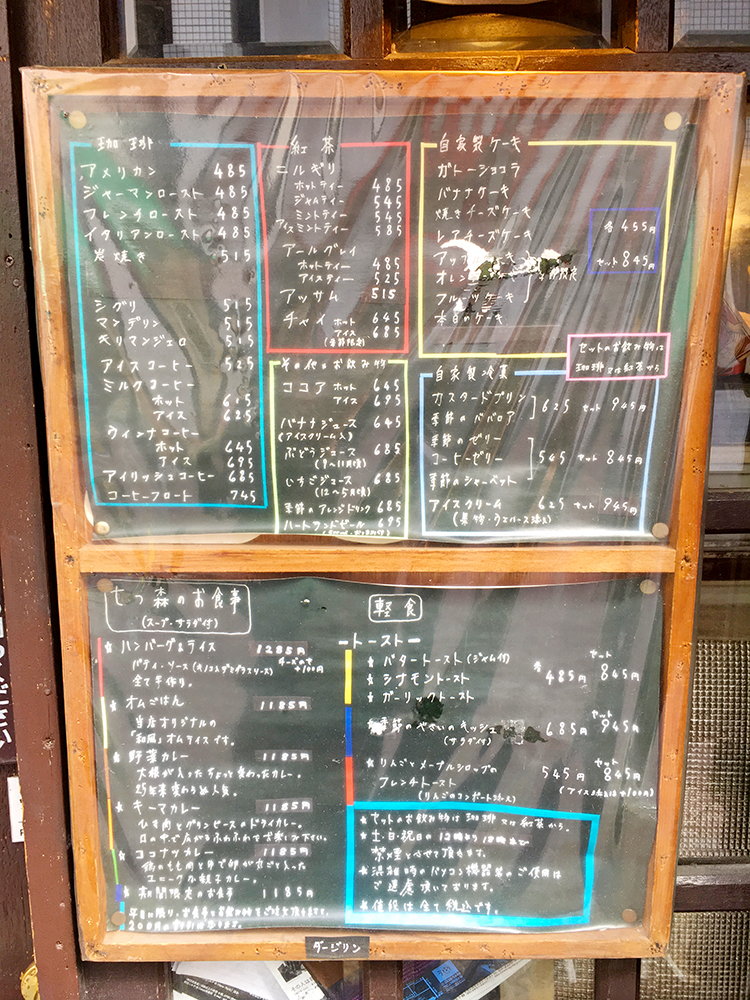 珈琲
アメリカン 485
ジャーマンロースト 485
フレンチロースト 485
イタリアンロースト 485
炭焼き 515
シグリ 515
マンデリン 515
キリマンジェロ 515
アイスコーヒー 525
ミルクコーヒー
ホット 615
アイス 625
ウィンナコーヒー
ホット 645
アイス 695
アイリッシュコーヒー 685
コーヒーフロート 745
紅茶
ニルギリ
ホットティー 485
ジャムティー 545
ミントティー 545
アイスミントティー 585
アールグレイ
ホットティー 485
アイスティー 525
アッサム 515
チャイ ホット 645
アイス 685
(季節限定)
その他のお飲み物
ココア ホット 645
アイス 695
バナナジュース 645
(アイスクリーム入)
ぶどうジュース 685
(9〜11月頃)
いちごジュース 685
(12〜5月頃)
季節のアレンジドリンク 685
ハートランドビール 695
自家製ケーキ
ガトーショコラ
バナナケーキ
焼きチーズケーキ
レアチーズケーキ
オレン
フルーツケーキ
本日のケーキ
各455円
セット845円
セットのお飲み物は
珈琲又は紅茶から
自家製冷菓
カスタードプリン
季節のババロア
625 セット 945円
季節のゼリー
コーヒーゼリー
季節のシャーベット
545 セット 845円
アイスクリーム 625 セット 945円
(果物・ウエハース添え)
七つ森のお食事
(スープ・サラダ付)
★ハンバーグ&ライス 1285円
パティ・ソース(キノコとデミグラスソース) チーズのせ
全て手作り。 +100円
★オムごはん 1185円
当店オリジナルの
「和風」オムライスです。
★野菜カレー 1185円
大根が入ったちょっと変わったカレー。
25年来変わらぬ人気。
★キーマカレー 1185円
ひき肉とグリンピースのドライカレー。
★ココナツカレー 1185円
鶏のもも肉と卵が丸ごと入った
ユニークな親子カレー。
★期間限定のお食事 1185円
軽食
ートーストー
★バタートースト(ジャム付)
★シナモントースト
★ガーリックトースト
各485円 セット845円
★季節のやさいのキッシュ 685円 セット945円
(サラダ付)
★りんごとメープルシロップの
フレンチトースト 545円 セット845円
(りんごのコンポート添え) (アイス添えは+100円)
★セットのお飲み物は珈琲又は紅茶から。
★土・日・祝日の12時から18時まで
禁煙とさせて頂きます。
★混雑時のパソコン機器等のご使用は
ご遠慮頂いております。
★値段は全て税込です。
ダージリン